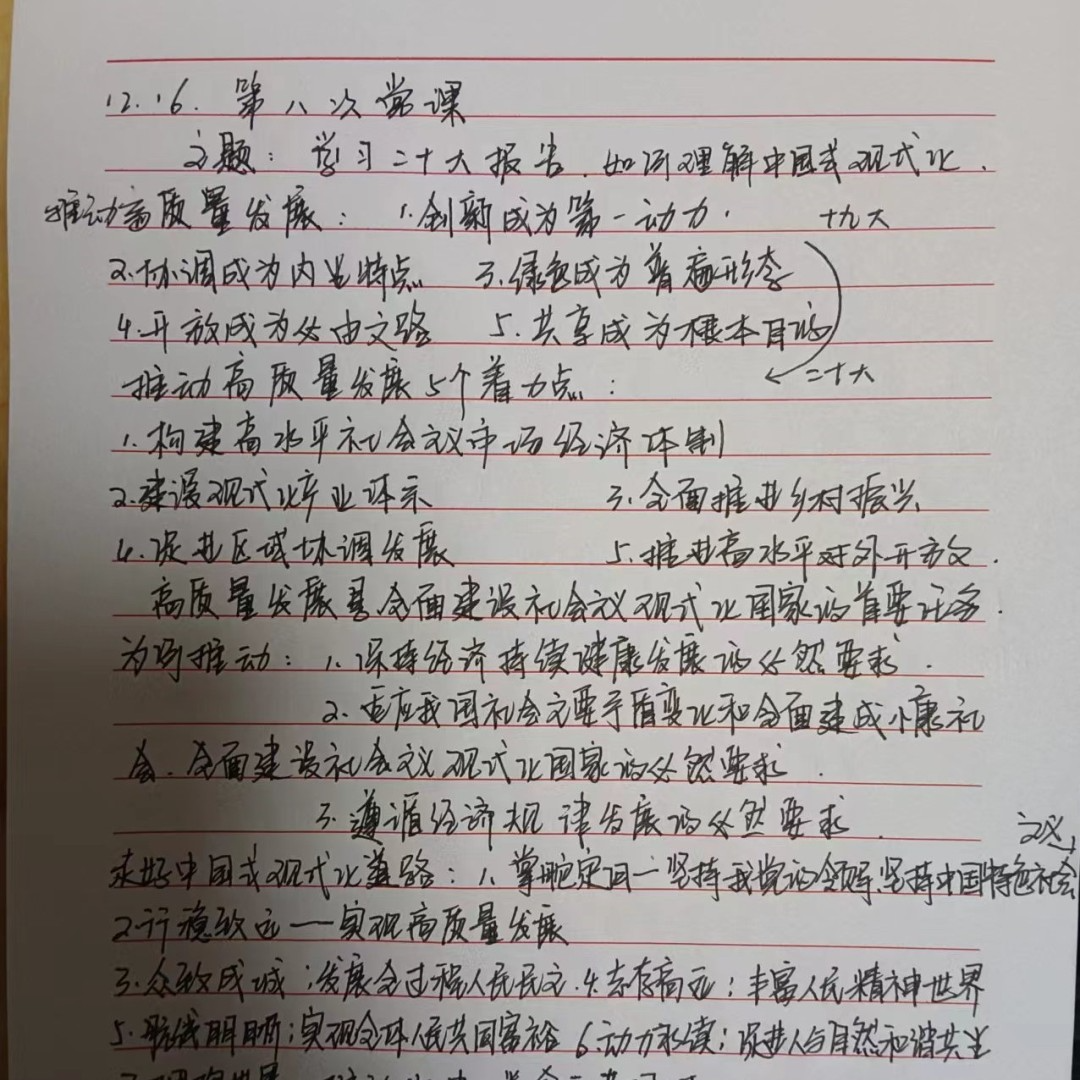 12.16. 第八次党课
主题：学习二十大报告.如何理解中国式现代化.
推动高质量发展：1.创新成为第一动力. 十九大
2.协调成为内生特点 3.绿色成为普遍形态
4.开放成为必由之路 5.共享成为根本目的
推动高质量发展5个着力点： ← 二十大
1.构建高水平社会主义市场经济体制
2.建设现代化产业体系 3.全面推进乡村振兴
4.促进区域协调发展 5.推进高水平对外开放.
高质量发展是全面建设社会主义现代化国家的首要任务.
为何推动：1.保持经济持续健康发展的必然要求.
2.适应我国社会主要矛盾变化和全面建成小康社
会.全面建设社会主义现代化国家的必然要求.
3.遵循经济规律发展的必然要求.
走好中国式现代化道路：1.掌舵定向—坚持我党的领导.坚持中国特色社会主义
2.行稳致远——实现高质量发展
3.众志成城：发展全过程人民民主.4.志存高远：丰富人民精神世界
5.：实现全体人民共同富裕 6.动力永续：促进人与自然和谐共生